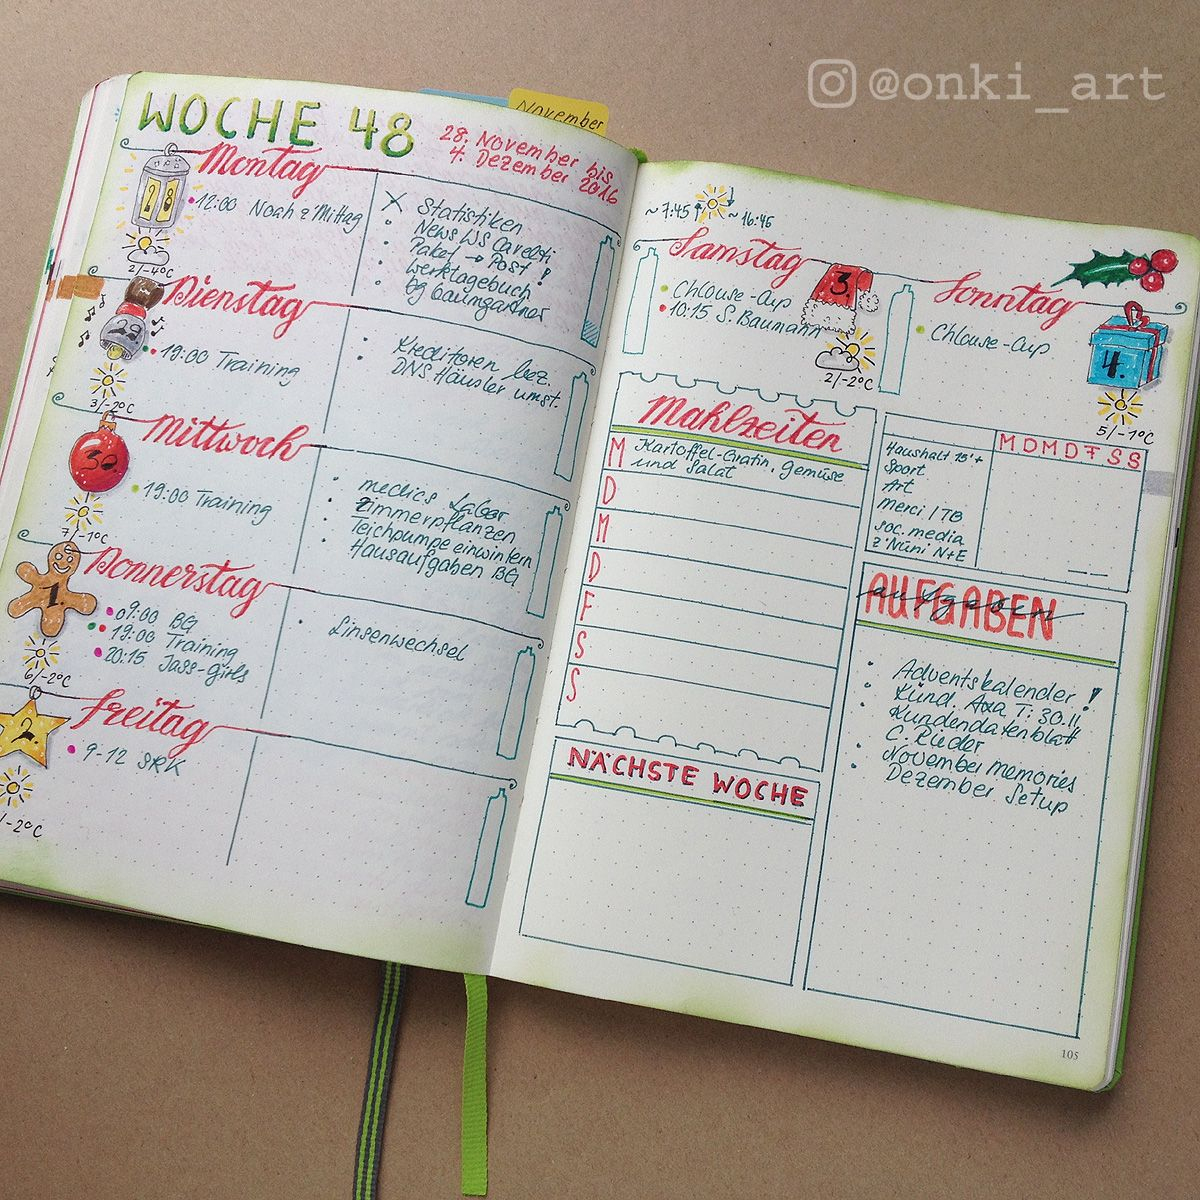 @onki_art
November
WOCHE 48
28. November bis
4. Dezember
2016
Montag
28
12:00 Noah z'Mittag
2/-4°C
X Statistiken
• News WS Cavelti
• Paket → Post !
• Werktagebuch
• bg baumgartner
Dienstag
29
19:00 Training
3/-2°C
• Kreditoren bez.
• DNS Häusler umst.
Mittwoch
30
19:00 Training
7/-1°C
• medics Labor
• Zimmerpflanzen
• Teichpumpe einwintern
• Hausaufgaben BG
Donnerstag
1.
09:00 BG
19:00 Training
20:15 Jass-Girls
6/-2°C
• Linsenwechsel
Freitag
2.
9-12 SRK
/-2°C
~7:45 ↑ ↓ ~16:45
Samstag
3.
Chlouse-Cup
10:15 S. Baumann
2/-2°C
Sonntag
4.
Chlouse-Cup
5/-1°C
Mahlzeiten
M Kartoffel-Gratin, gemüse
und Salat
D
M
D
F
S
S
NÄCHSTE WOCHE
M D M D F S S
Haushalt 15'+
Sport
Art
Merci / TB
soc. media
z'Nüni N+E
AUFGABEN
aufgaben
• Adventskalender !
• Künd. Axa T: 30.11.
• Kundendatenblatt
C. Ruder
• November memories
• Dezember Setup
105